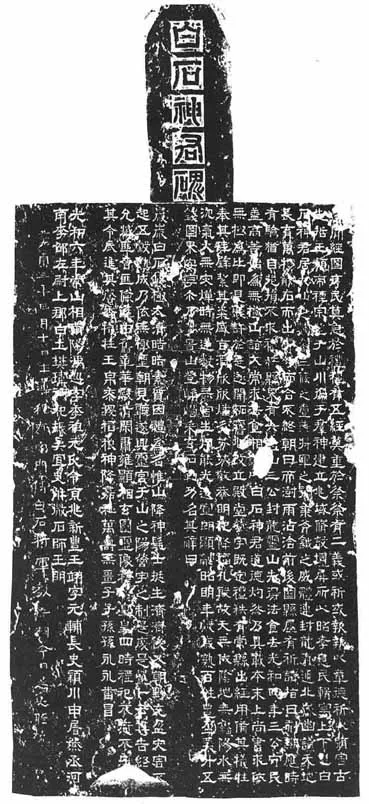 白石神君碑
蓋聞經國序民莫急於禮禮有五經莫重於祭祭有二義或祈或報報以章德祈以弭害古
先哲王類帝禋宗望于山川徧于羣神建立兆域脩設壇屏所以昭孝息民輯寧上下也白
石神君居九山之數參三條之壹兼將軍之號秉斧鉞之威體連封龍氣通北嶽幽讚天地
長育萬物觸石而出膚寸而合不終朝日而澍雨沾洽前後國縣屢有祈請指日刻期應時
有驗猶自抱損不求禮秩縣界有六名山三公封龍靈山先得法食去光和四年三公守民
蓋高等始為無極山詣大常求法食相縣以白石神君道德灼然乃具載本末上尚書求依
無極為比即見聽許於是遂開拓舊兆改立殿堂營宇既定禮秩有常縣出經用備其犧牲
奉其珪璧絜其粢盛旨酒欣欣燔炙芬芬敬恭明祀降福孔殷故天無伏陰地無鮮陽水無
沉氣火無災燀時無逆數物無害生用能光遠宣朗顯融昭明年穀歲熟百姓豐盈粟升五
錢國界安寧爾乃陟景山登崢嶸采玄石勒功名其辭曰
巖巖白石峻極太清皓皓素質因體為名惟山降神髦士挺生濟濟俊乂朝野充盈災害不
起五穀熟成乃依無極聖朝見聽遂興靈宮于山之陽營宇之制是度是量卜云其吉終然
允臧匪奢匪儉率由舊章華殿清閑肅雍顯相玄圖靈像穆穆皇皇四時禋祀不愆不忘擇
其令辰進其馨香犧牲玉帛黍稷稻糧神降嘉祉萬壽無疆子子孫孫永永番昌
光和六年常山相南陽馮巡字季祖元氏令京兆新豐王翊字元輔長史潁川申屠熊丞河
南李邵左尉上郡白土樊瑋祠祀掾吳宜史解微石師王明